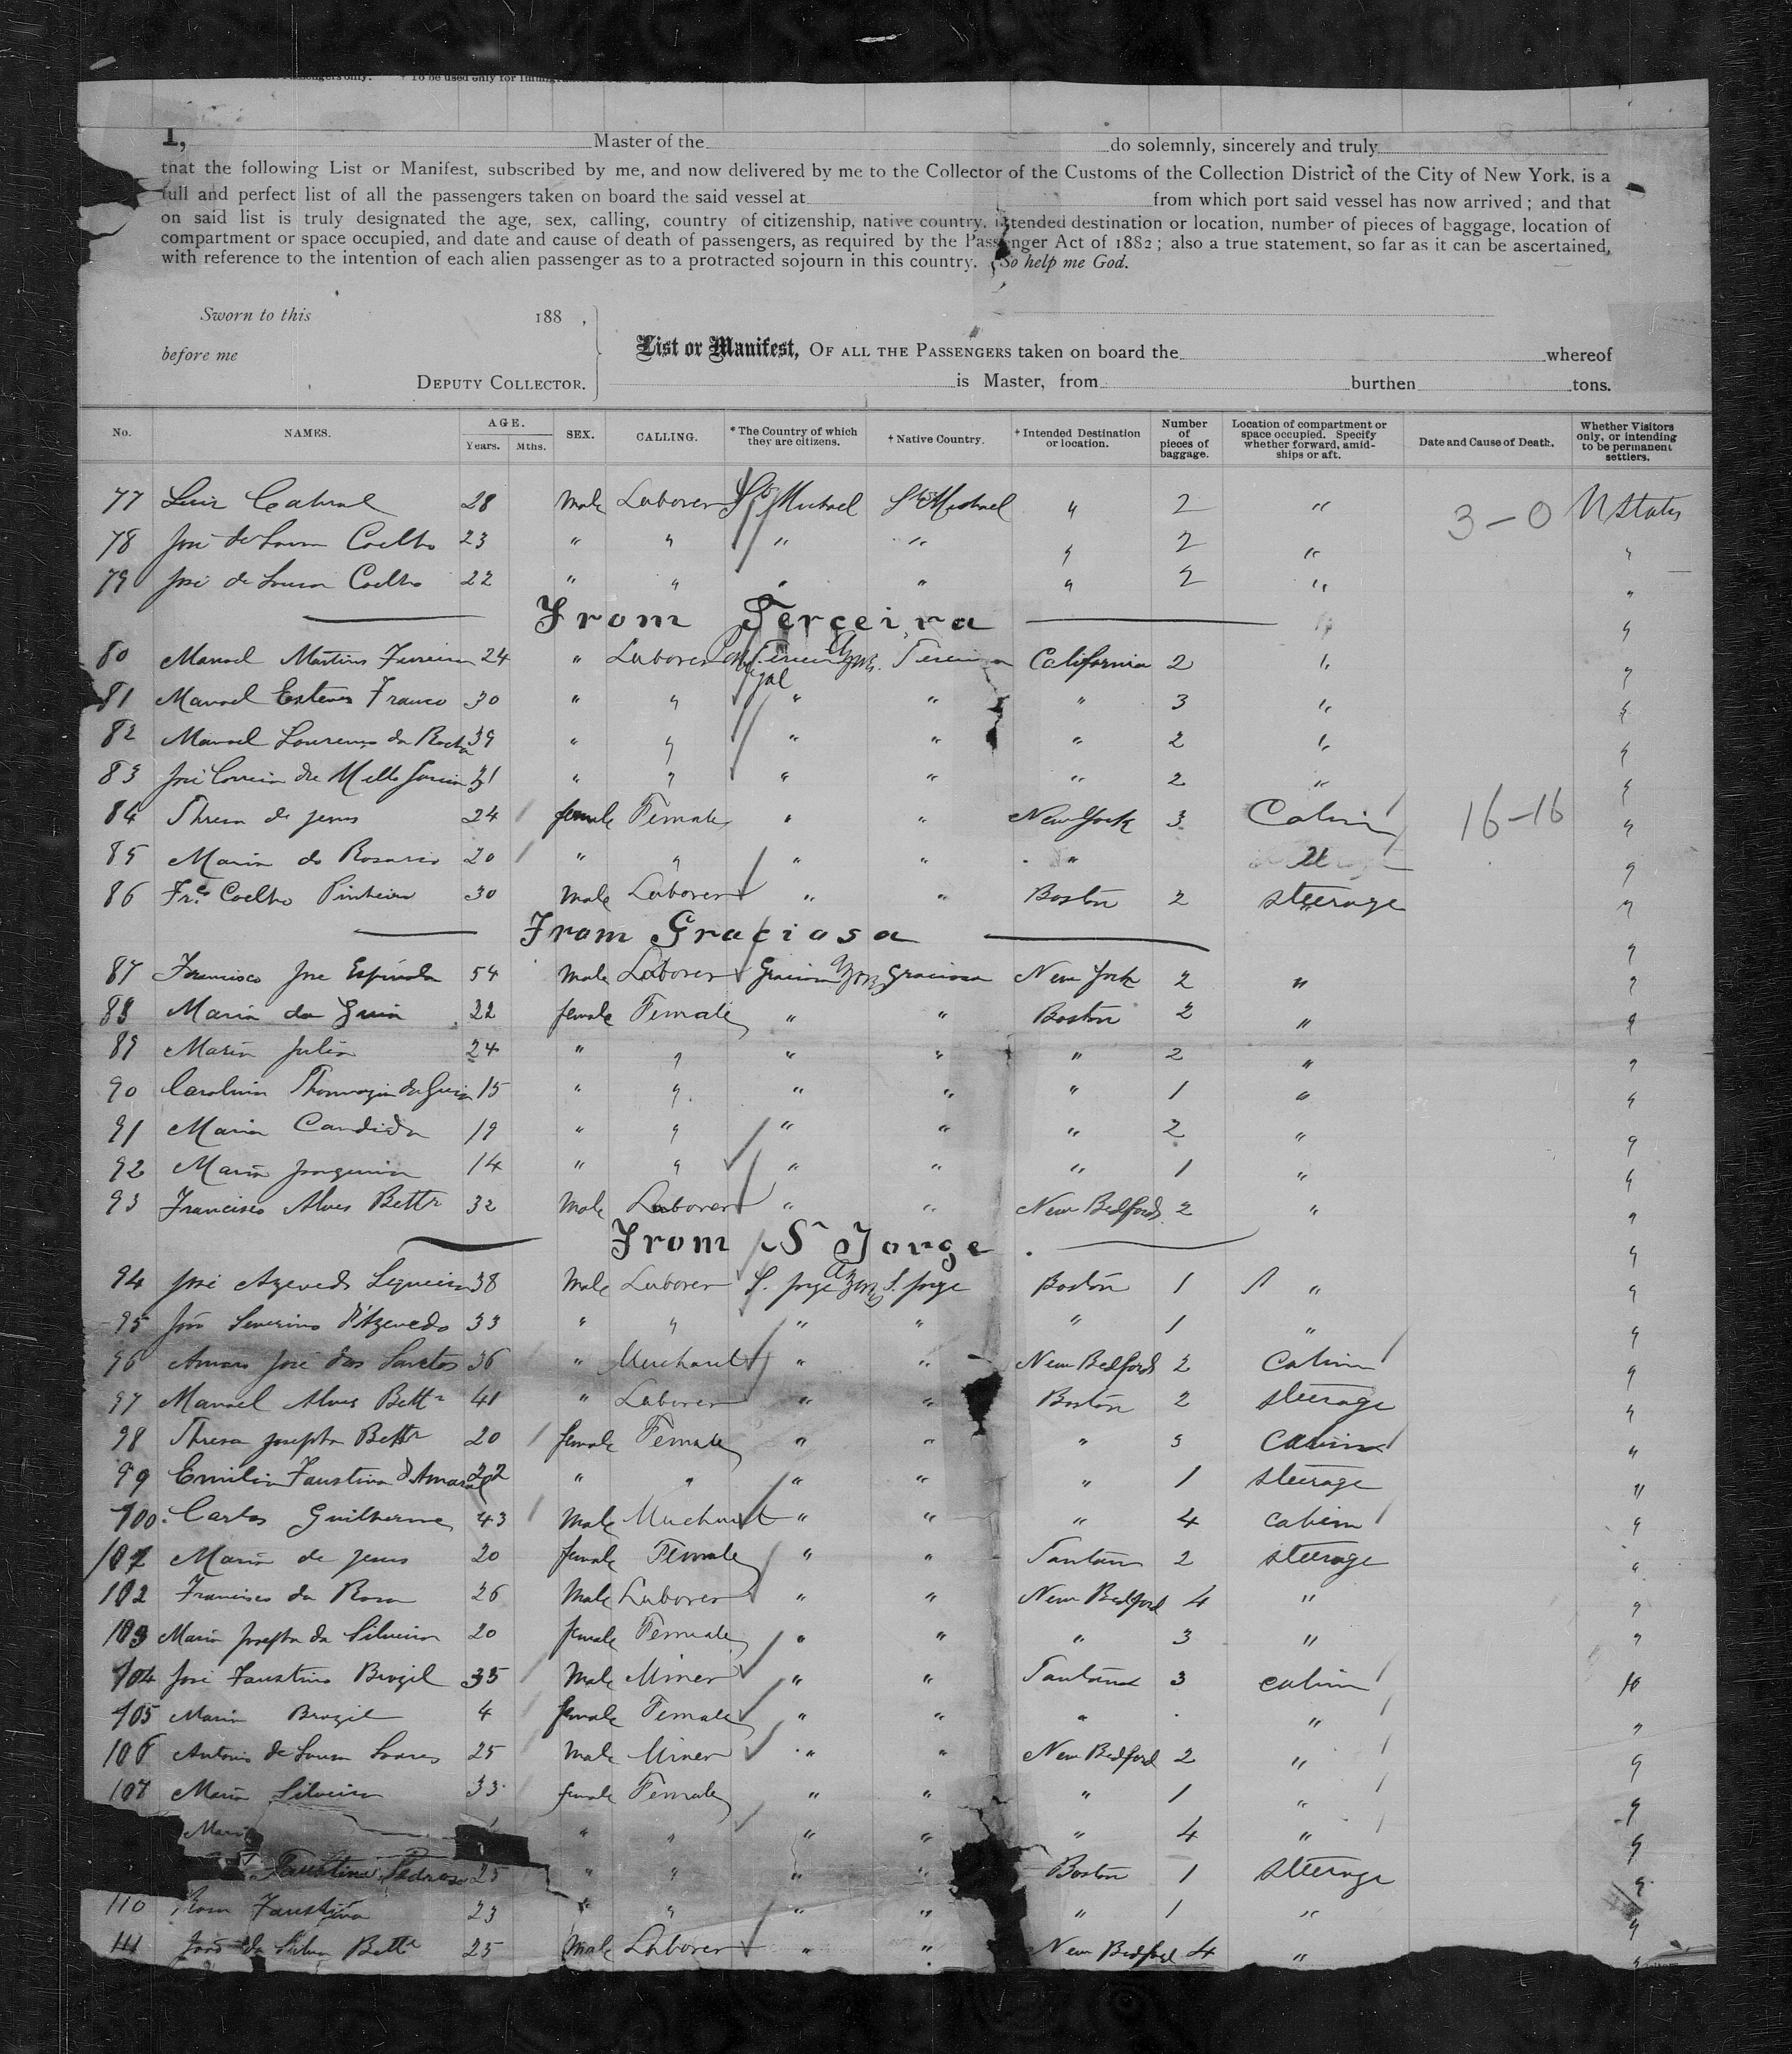 I, Master of the do solemnly, sincerely and truly
that the following List or Manifest, subscribed by me, and now delivered by me to the Collector of the Customs of the Collection District of the City of New York, is a
full and perfect list of all the passengers taken on board the said vessel at from which port said vessel has now arrived; and that
on said list is truly designated the age, sex, calling, country of citizenship, native country, intended destination or location, number of pieces of baggage, location of
compartment or space occupied, and date and cause of death of passengers, as required by the Passenger Act of 1882; also a true statement, so far as it can be ascertained,
with reference to the intention of each alien passenger as to a protracted sojourn in this country. So help me God.
Sworn to this 188 ,
before me
DEPUTY COLLECTOR.
List or Manifest, OF ALL THE PASSENGERS taken on board the whereof
is Master, from burthen tons.
No. NAMES. AGE. Years. Mths. SEX. CALLING. * The Country of which they are citizens. † Native Country. † Intended Destination or location. Number of pieces of baggage. Location of compartment or space occupied. Specify whether forward, amidships or aft. Date and Cause of Death. Whether Visitors only, or intending to be permanent settlers.
77 Luiz Cabral 28 Male Laborer St Michael St Michael " 2 " 3-0 U States
78 José de Souza Coelho 23 " " " " " 2 " "
79 José de Souza Coelho 22 " " " " " 2 " "
From Terceira
80 Manoel Martins Ferreira 24 " Laborer Terceira Azores Terceira California 2 " "
81 Manoel Esteves Franco 30 " " " " " 3 " "
82 Manoel Lourenço da Rocha 39 " " " " " 2 " "
83 José Correia de Mello 31 " " " " " 2 " "
84 Theresa de Jesus 24 female Female " " New York 3 Cabin 16-16 "
85 Maria do Rosario 20 " " " " " " "
86 Frco Coelho Pinheiro 30 Male Laborer " " Boston 2 steerage "
From Graciosa
87 Francisco Jose Espinola 54 Male Laborer Graciosa Azores Graciosa New York 2 " "
88 Maria da Guia 22 female Female " " Boston 2 " "
89 Maria Julia 24 " " " " " 2 " "
90 Carolina Thomazia da Guia 15 " " " " " 1 " "
91 Maria Candida 19 " " " " " 2 " "
92 Maria Joaquina 14 " " " " " 1 " "
93 Francisco Alves Bettr 32 Male Laborer " " New Bedford 2 " "
From S Jorge
94 José Azevedo Sequeira 38 Male Laborer S. Jorge Azores S. Jorge Boston 1 " "
95 João Severino d'Azevedo 33 " " " " " 1 " "
96 Amaro José dos Santos 36 " Merchant " " New Bedford 2 Cabin "
97 Manoel Alves Bettr 41 " Laborer " " Boston 2 steerage "
98 Theresa Josepha Bettr 20 female Female " " " 3 Cabin "
99 Emilia Faustina d'Amaral 22 " " " " " 1 steerage "
100 Carlos Guilherme 43 Male Merchant " " " 4 cabin "
101 Maria de Jesus 20 female Female " " Tanton 2 steerage "
102 Francisco da Rosa 26 Male Laborer " " New Bedford 4 " "
103 Maria Josepha da Silveira 20 female Female " " " 3 " "
104 José Faustino Brazil 35 Male Miner " " 3 cabin "
105 Maria Brazil 4 female Female " " " " "
106 Antonio de Souza Soares 25 Male Miner " " New Bedford 2 " "
107 Maria Silveira 33 female Female " " " 1 " "
Maria " " " " " 4 " "
Faustina Pedroso 25 " " " " Boston 1 steerage "
110 Rosa Faustina 23 " " " " " 1 " "
111 João da Silva Bettr 25 Male Laborer " " New Bedford 4 " "